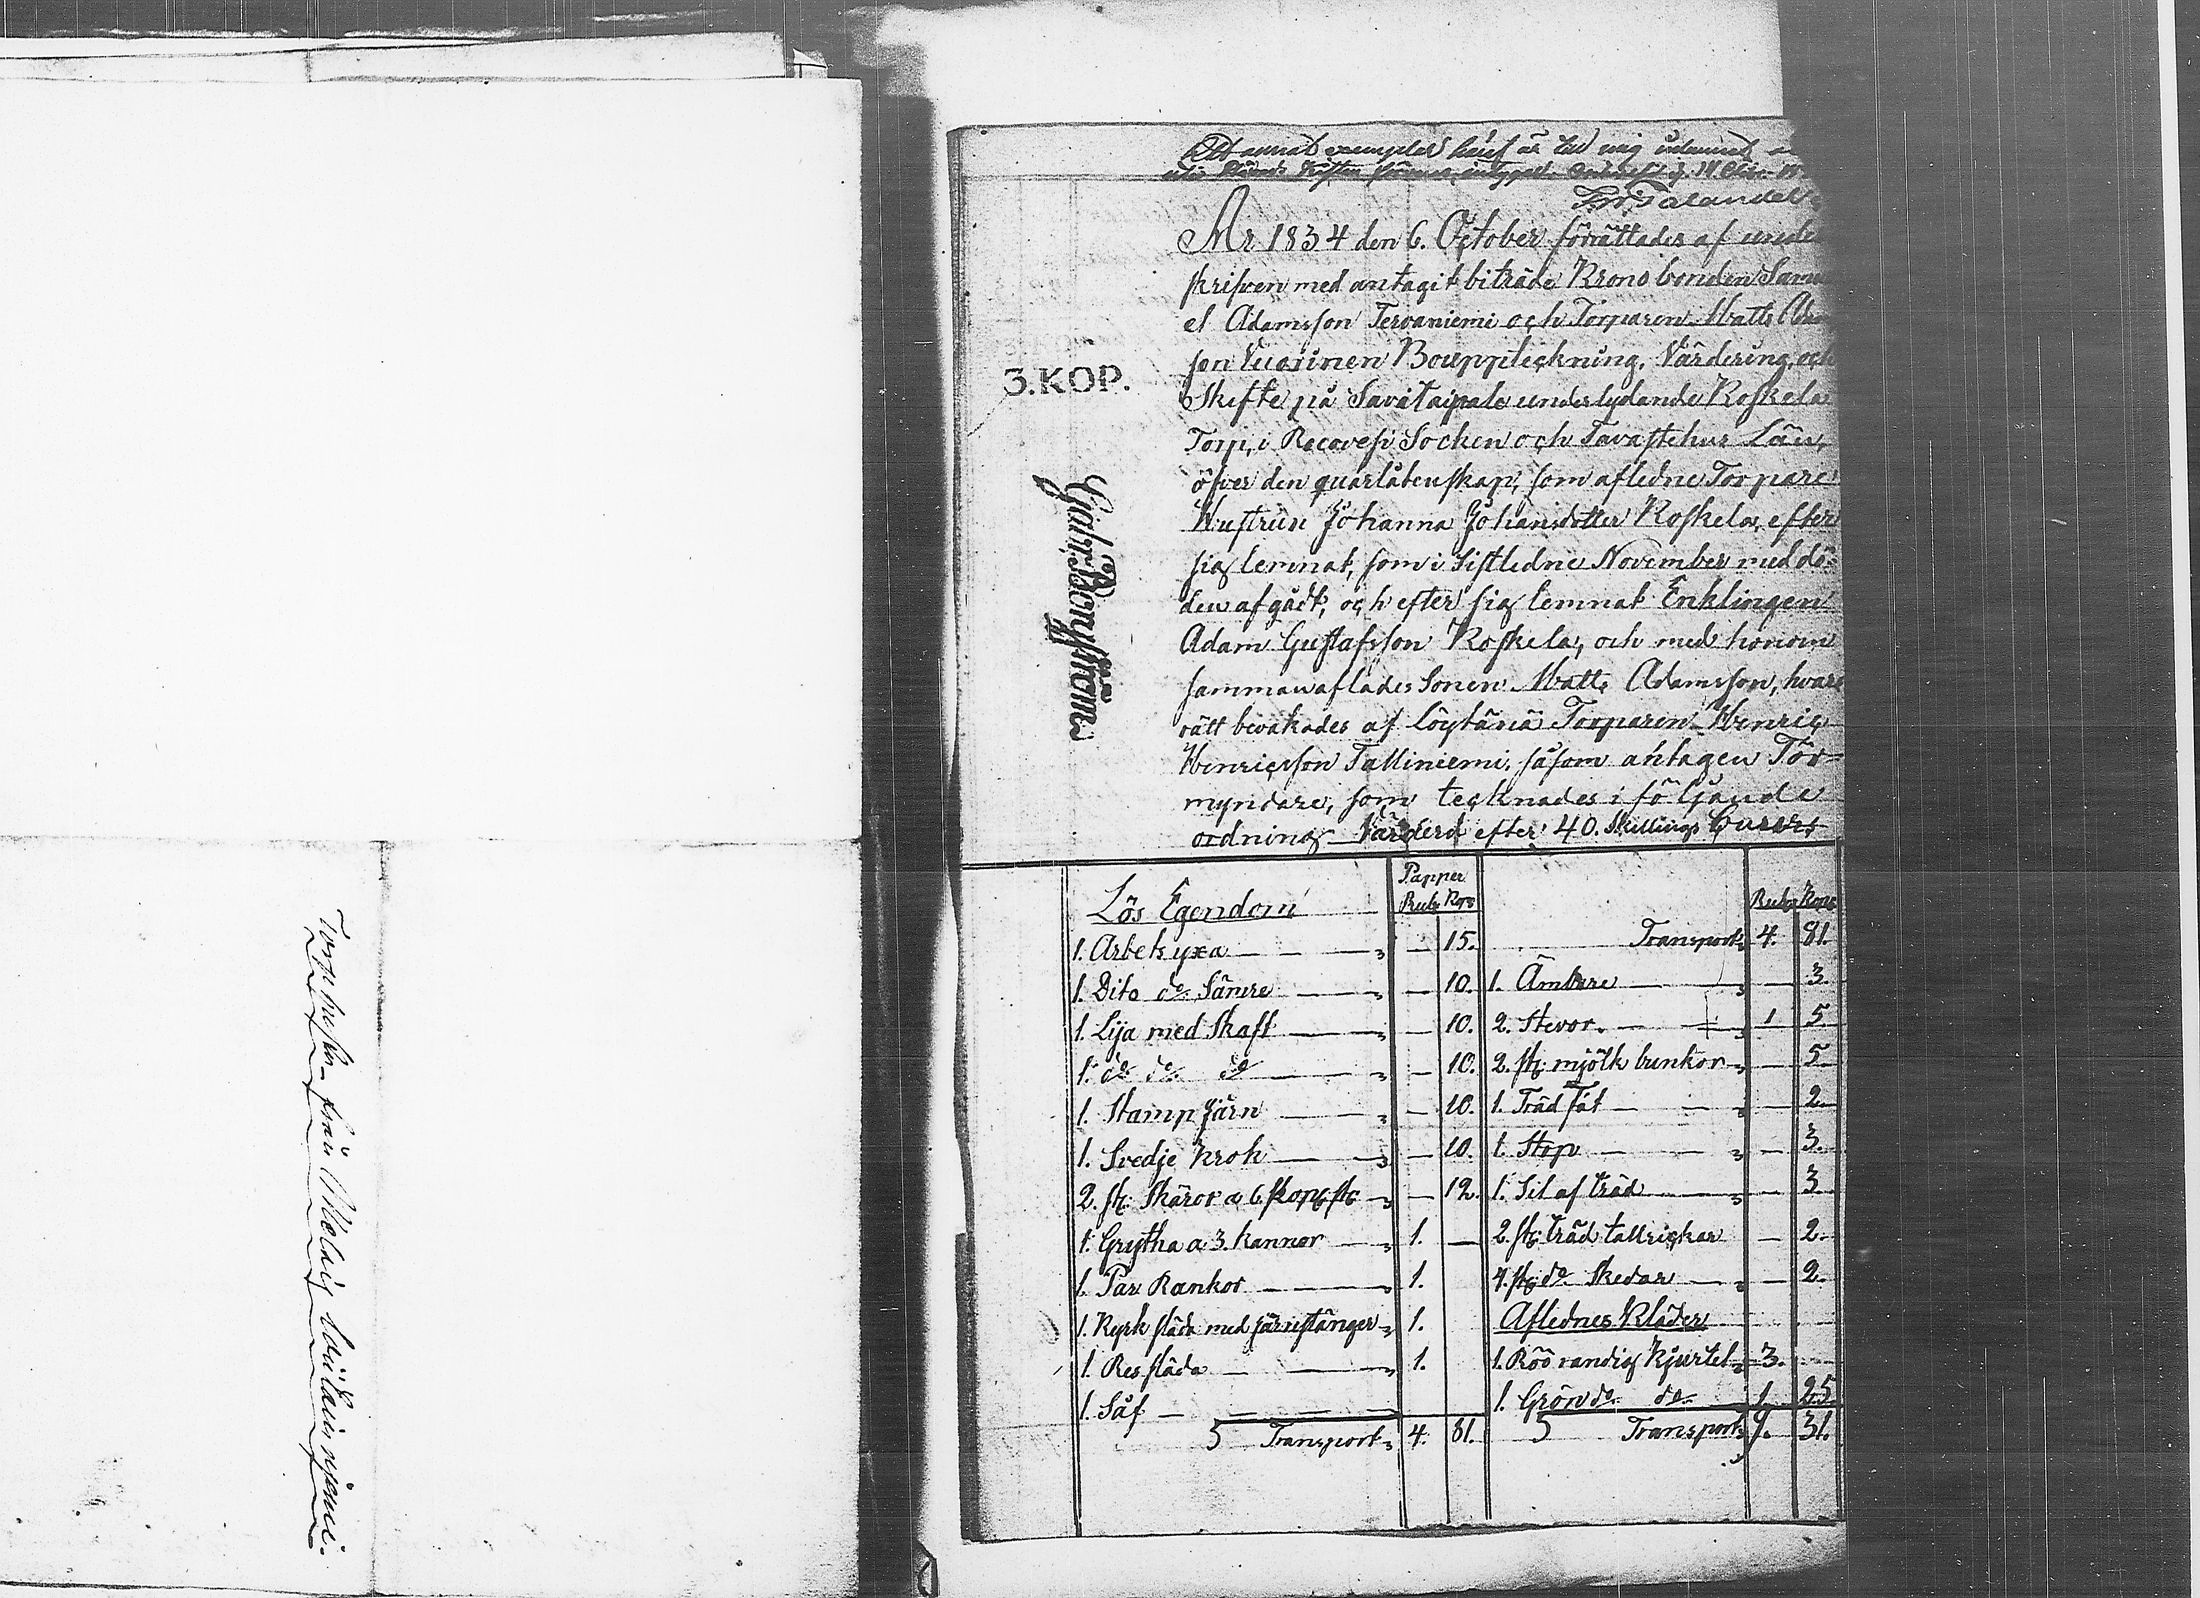 Ett annat exemplar häraf är till mig inlemnad
År 1834 den 6. October förrättades af under
skrifven med antagit biträde Krono bonden Samu
el Adamsson Tervaniemi och Torparen Matts Adam
son Vuorinen Bouppteckning, Värdering, och
3.KOP.
Skifte på Savitaipale underlydande Koskela
Torp, i Recovesi Socken och Tavastehus Län,
öfver den quarlåtenskap, som aflidne Torpare
Hustrun Johanna Johansdotter Koskela, efter
sig lemnat, som i sistledne November med dö-
den afgått, och efter sig lemnat Enklingen
Adam Gustafsson Koskela, och med honom
sammanaflades Sonen Matts Adamsson, hvars
rätt bevakades af Löytänä Torparen Henric
Henricsson Talliniemi, såsom antagen För-
myndare, som tecknades i följande
ordning Värderd efter 40. Skillings Cours
Lös Egendom Papper Rub. Kop.
1. Arbets yxa — 15.
1. Dito do Sämre — 10.
1. Lija med Skaft — 10.
1. do do do — 10.
1. Stamp Järn — 10.
1. Svedje krok — 10.
2. st. Skäror a 6 kop st — 12.
1. Grytha a 3. kannor 1. —
1. Par Rankor 1.
1. Kyrk släda med järnstänger 1.
1. Res släda 1.
1. Såf —
Transport 4. 81.
Rub. Kop.
Transport 4. 81.
1. Ämbare — 3.
2. Stevor. 1 5
2. st. mjölk bunkor — 5
1. Träd Fat — 2
1. Stop — 3.
1. Sil af träd — 3
2. st. träd tallrickar — 2.
4. st. do Skedar — 2.
Aflednes Kläder
1. Röd randig Kjortel 3.
1. Grön do do 1 25
Transport 9. 31.